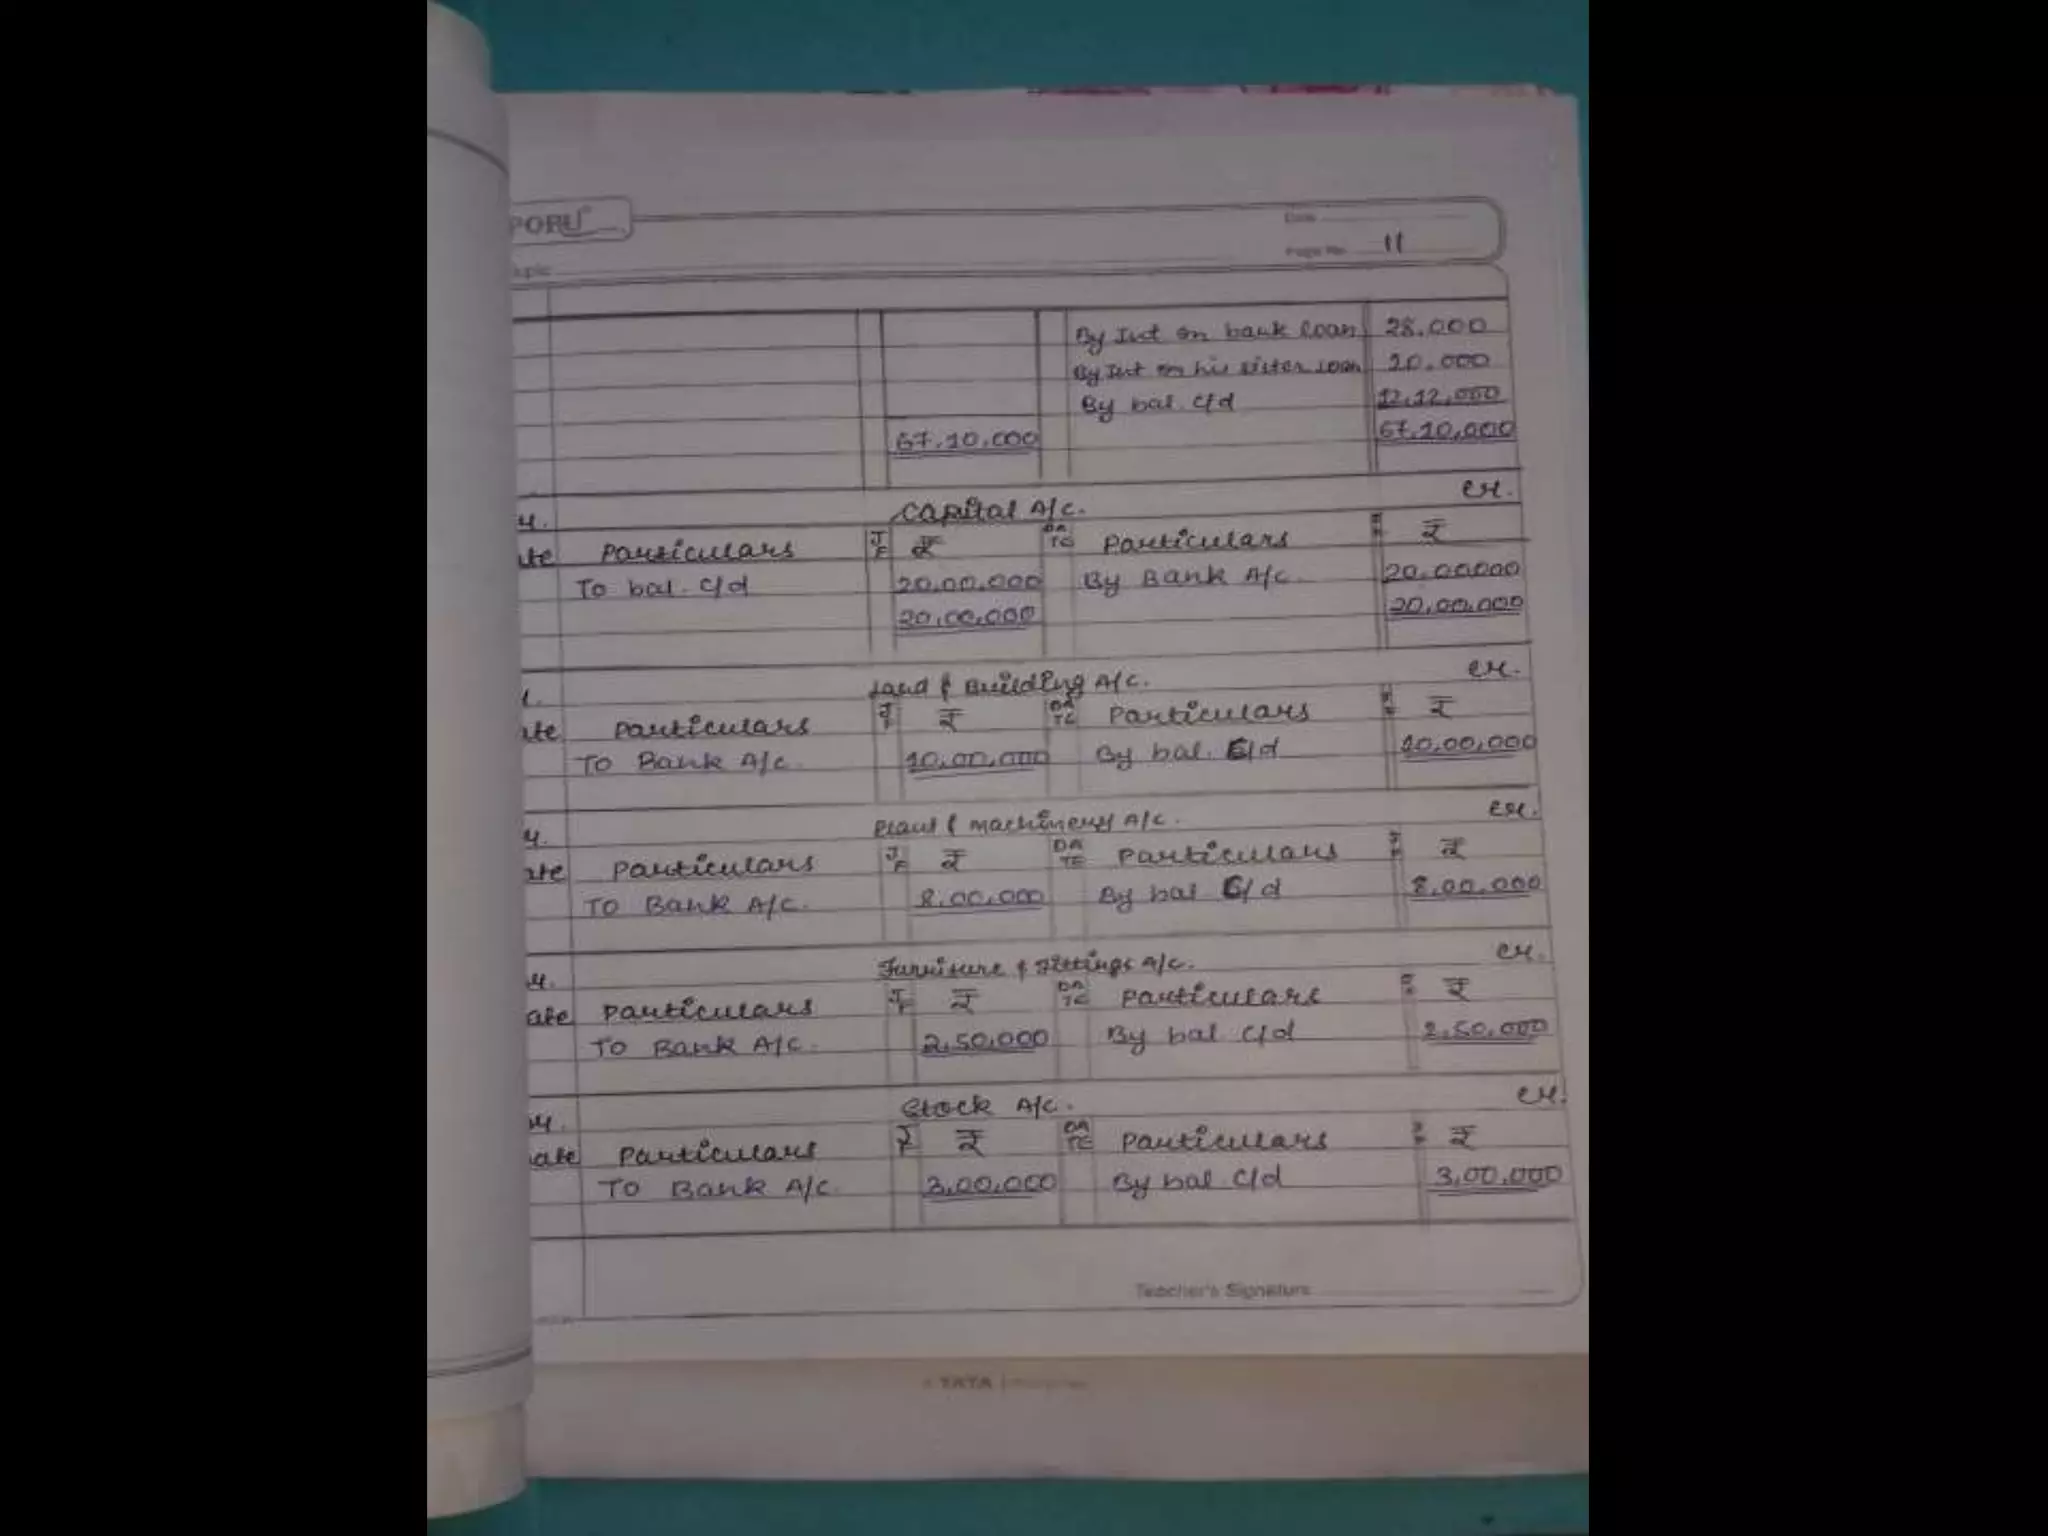 PORU
Date
Page No. 11
By Int on bank loan 28,000
By Int on his sister loan 20,000
By bal. c/d 12,12,000
67,10,000 67,10,000
Capital A/c. cr.
ate Particulars JF ₹ DATE Particulars ₹
To bal. c/d 20,00,000 By Bank A/c. 20,00000
20,00,000 20,00,000
Land & Building A/c. cr.
ate Particulars JF ₹ DATE Particulars ₹
To Bank A/c. 10,00,000 By bal. c/d 10,00,000
Plant & Machinery A/c. cr.
ate Particulars JF ₹ DATE Particulars ₹
To Bank A/c. 8,00,000 By bal c/d 8,00,000
Furniture & Fittings A/c. cr.
ate Particulars JF ₹ DATE Particulars ₹
To Bank A/c. 2,50,000 By bal c/d 2,50,000
Stock A/c. cr.
ate Particulars JF ₹ DATE Particulars ₹
To Bank A/c. 3,00,000 By bal. c/d 3,00,000
Teacher's Signature
TATA